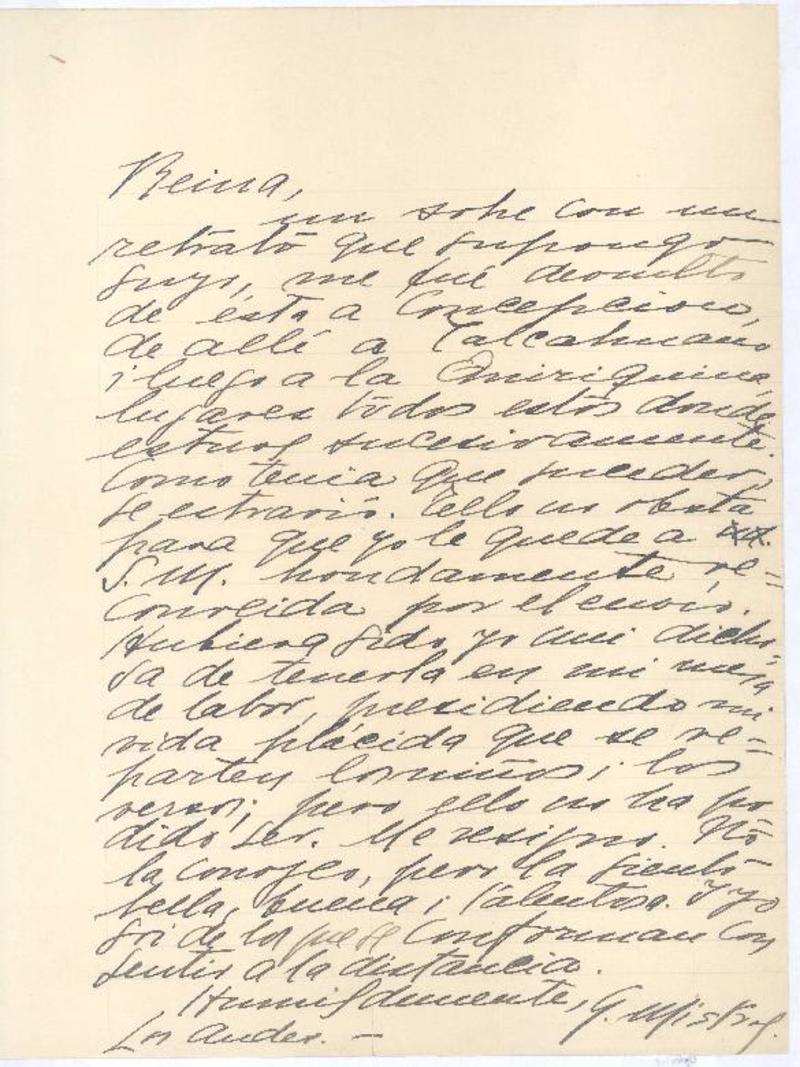 Reina,
un sobre con un
retrato que supongo
suyo, me fué devuelto
de ésta a Concepcion,
de allí a Talcahuano
i luego a la Quiriquina,
lugares todos estos donde
estuve sucesivamente.
Como tenia que suceder,
se estravió. Ello no obsta
para que yo le quede a
S. M. hondamente re-
conocida por el envío.
Hubiera sido yo mui dicho-
sa de tenerla en mi mesa
de labor, presidiendo mi
vida plácida que se re-
parten los niños i los
versos; pero ello no ha po
dido ser. Me resigno. No
la conozco, pero la siento
bella, buena i talentosa. I yo
soi de los que se conforman con
sentir a la distancia.
Humildemente, G. Mistral.
Los Andes. —